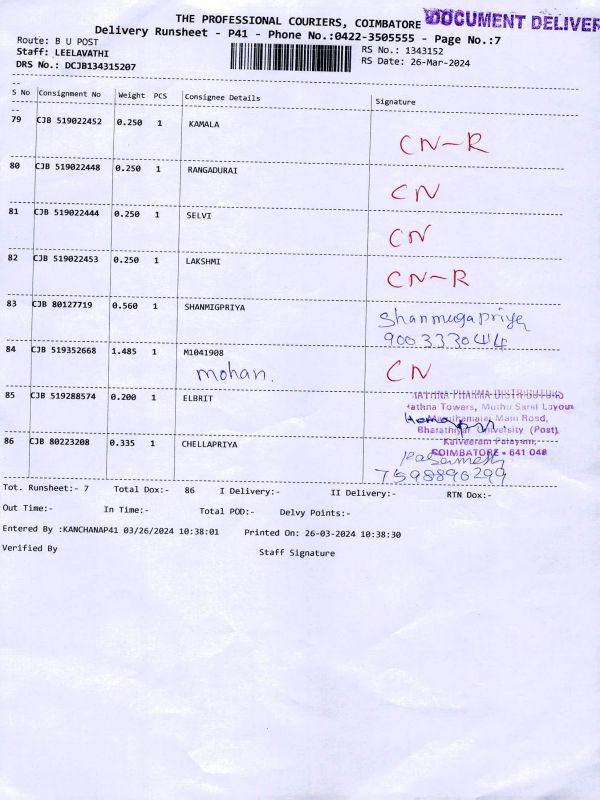 THE PROFESSIONAL COURIERS, COIMBATORE DOCUMENT DELIVER
Delivery Runsheet - P41 - Phone No.:0422-3505555 - Page No.:7
Route: B U POST RS No.: 1343152
Staff: LEELAVATHI RS Date: 26-Mar-2024
DRS No.: DCJB134315207
S No Consignment No Weight PCS Consignee Details Signature
79 CJB 519022452 0.250 1 KAMALA
CN-R
80 CJB 519022448 0.250 1 RANGADURAI
CN
81 CJB 519022444 0.250 1 SELVI
CN
82 CJB 519022453 0.250 1 LAKSHMI
CN-R
83 CJB 80127719 0.560 1 SHANMIGPRIYA
Shanmugapriya
9003330414
84 CJB 519352668 1.485 1 M1041908
mohan. CN
85 CJB 519288574 0.200 1 ELBRIT
RATHNA PHARMA DISTRIBUTORS
Rathna Towers, Muthu Sami Layout
Maruthamalai Main Road,
Bharathiyar University (Post),
Kalveeram Palayam,
COIMBATORE - 641 046
86 CJB 80223208 0.335 1 CHELLAPRIYA
7598896299
Tot. Runsheet:- 7 Total Dox:- 86 I Delivery:- II Delivery:- RTN Dox:-
Out Time:- In Time:- Total POD:- Delvy Points:-
Entered By :KANCHANAP41 03/26/2024 10:38:01 Printed On: 26-03-2024 10:38:30
Verified By Staff Signature